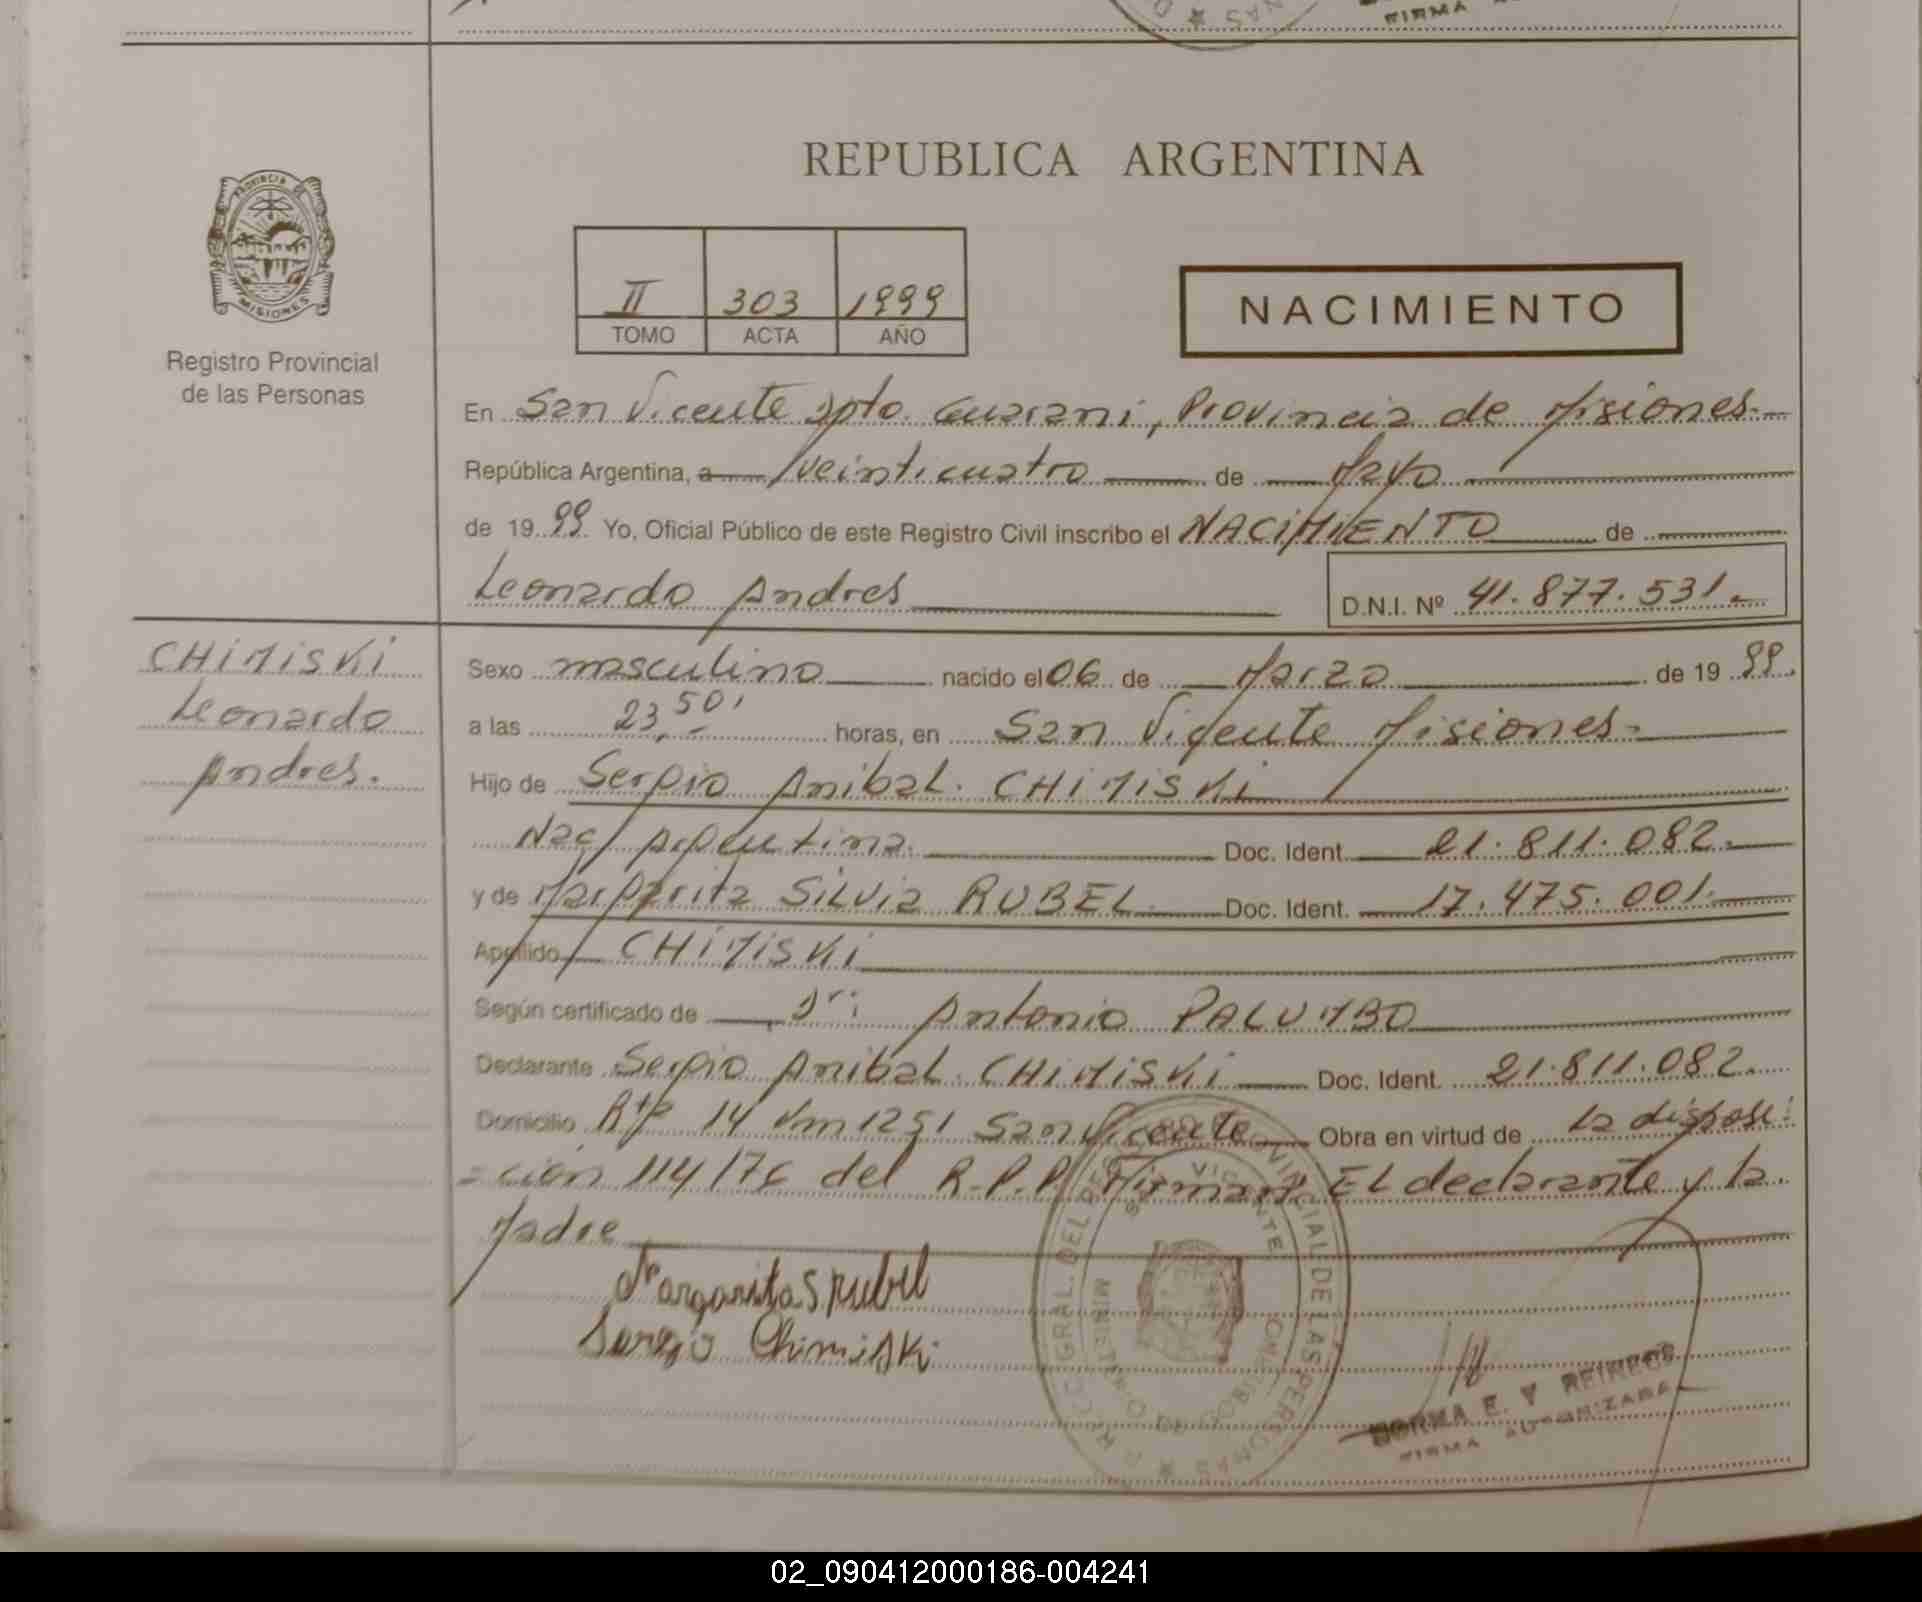 FIRMA
REPUBLICA ARGENTINA
PROVINCIA DE
MISIONES
Registro Provincial
de las Personas
II 303 1999
TOMO ACTA AÑO
NACIMIENTO
En San Vicente Dpto. Guarani, Provincia de Misiones.-
República Argentina, a veinticuatro de Mayo
de 1999 Yo, Oficial Público de este Registro Civil inscribo el NACIMIENTO de
Leonardo Andres D.N.I. Nº 41.877.531.-
CHIMISKI
Leonardo
Andres.
Sexo masculino nacido el 06 de Marzo de 1999.
a las 23,50' horas, en San Vicente Misiones-
Hijo de Sergio Anibal. CHIMISKI
Nac/ Argentina. Doc. Ident. 21.811.082.
y de Margarita Silvia RUBEL Doc. Ident. 17.475.001.
Apellido CHIMISKI
Según certificado de Dr: Antonio PALUMBO
Declarante Sergio Anibal. CHIMISKI Doc. Ident. 21.811.082.
Domicilio Rta 14 Km 1251 San Vicente Obra en virtud de la disposi
=ción 114/76 del R.P.P. Firman: El declarante y la
Madre
Margarita S Rubel
Sergio Chimiski
GRAL. DEL REGISTRO PROVINCIAL DE LAS PERSONAS
SAN VICENTE
NORMA E. V REINEGR
FIRMA AUTORIZADA
02_090412000186-004241